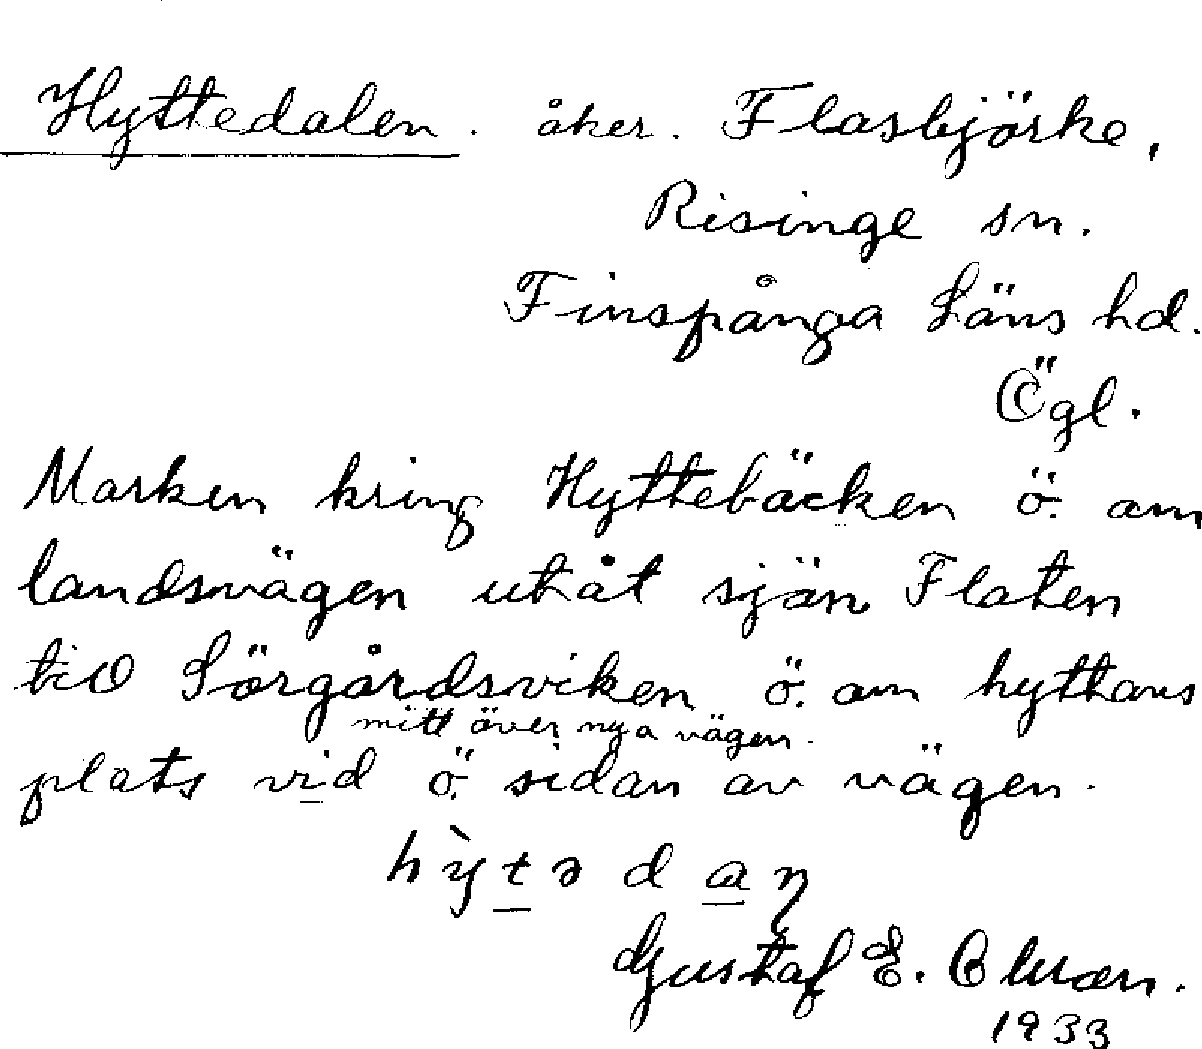 Hyttedalen. åker. Flasbjörke,
Risinge sn.
Finspånga Läns hd.
Ögl.
Marken kring Hyttebäcken ö. om
landsvägen utåt sjön Flaten
till Sörgårdsviken ö. om hyttans
mitt över nya vägen.
plats vid ö. sidan av vägen.
hỳtə daŋ
Gustaf E.
1933